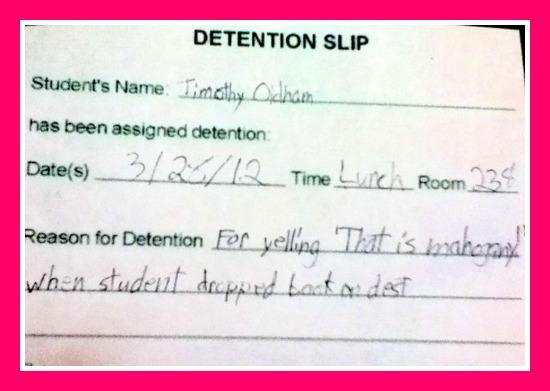 DETENTION SLIP
Student's Name: Timothy Oldham
has been assigned detention:
Date(s) 3/26/12 Time Lunch Room 238
Reason for Detention For yelling "That is mahogany!"
when student dropped book on dest